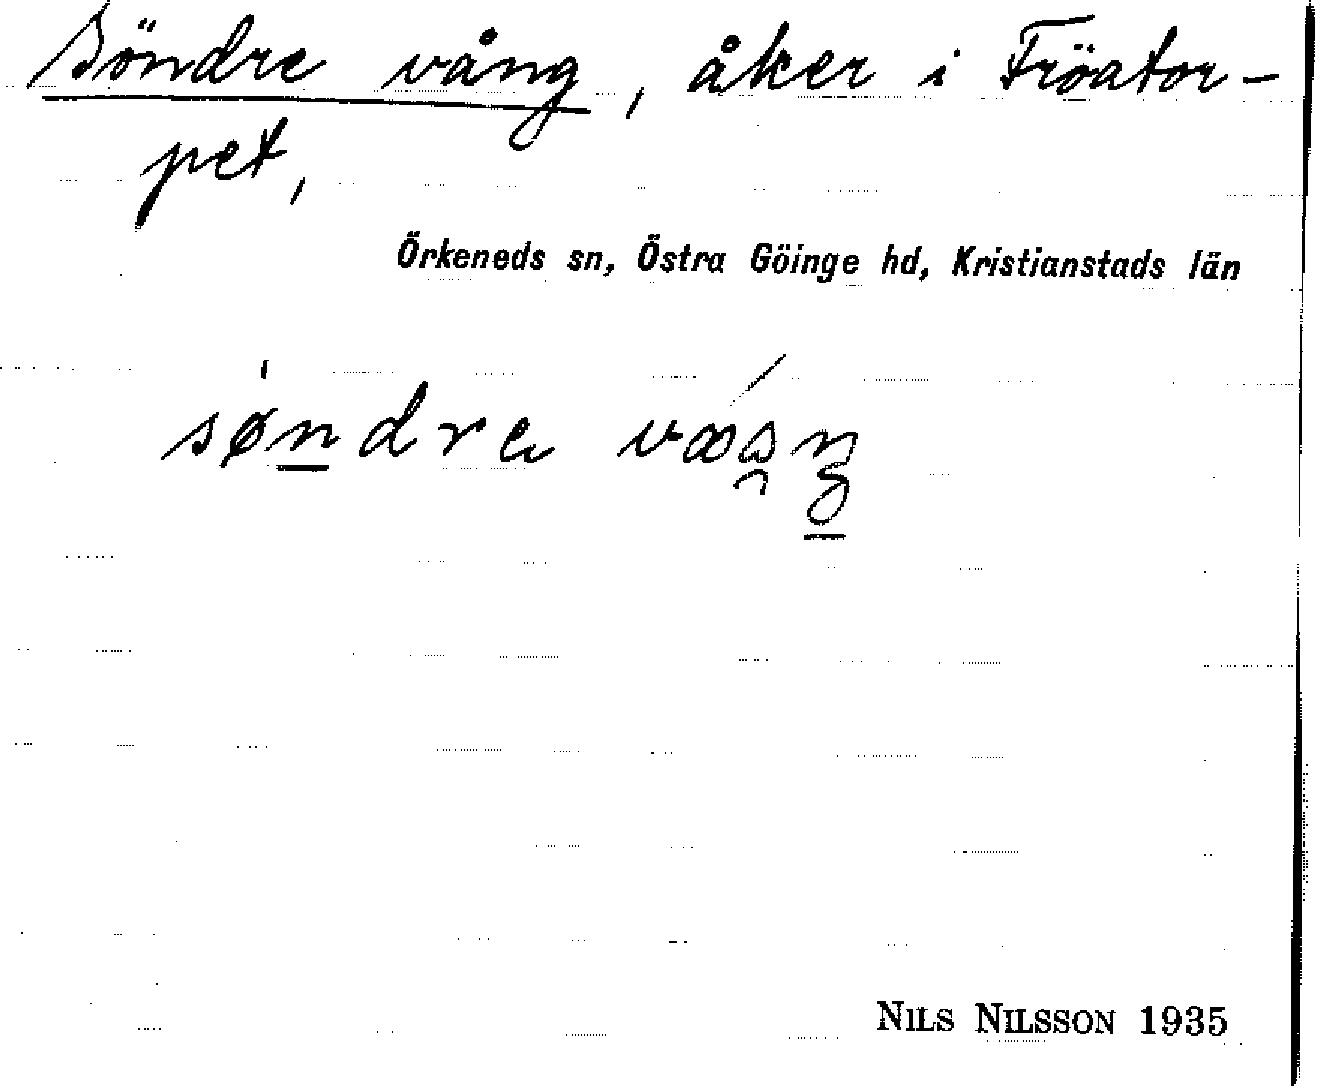 Söndre vång, åker i Fröator-
pet,
Örkeneds sn, Östra Göinge hd, Kristianstads län
søndre
NILS NILSSON 1935